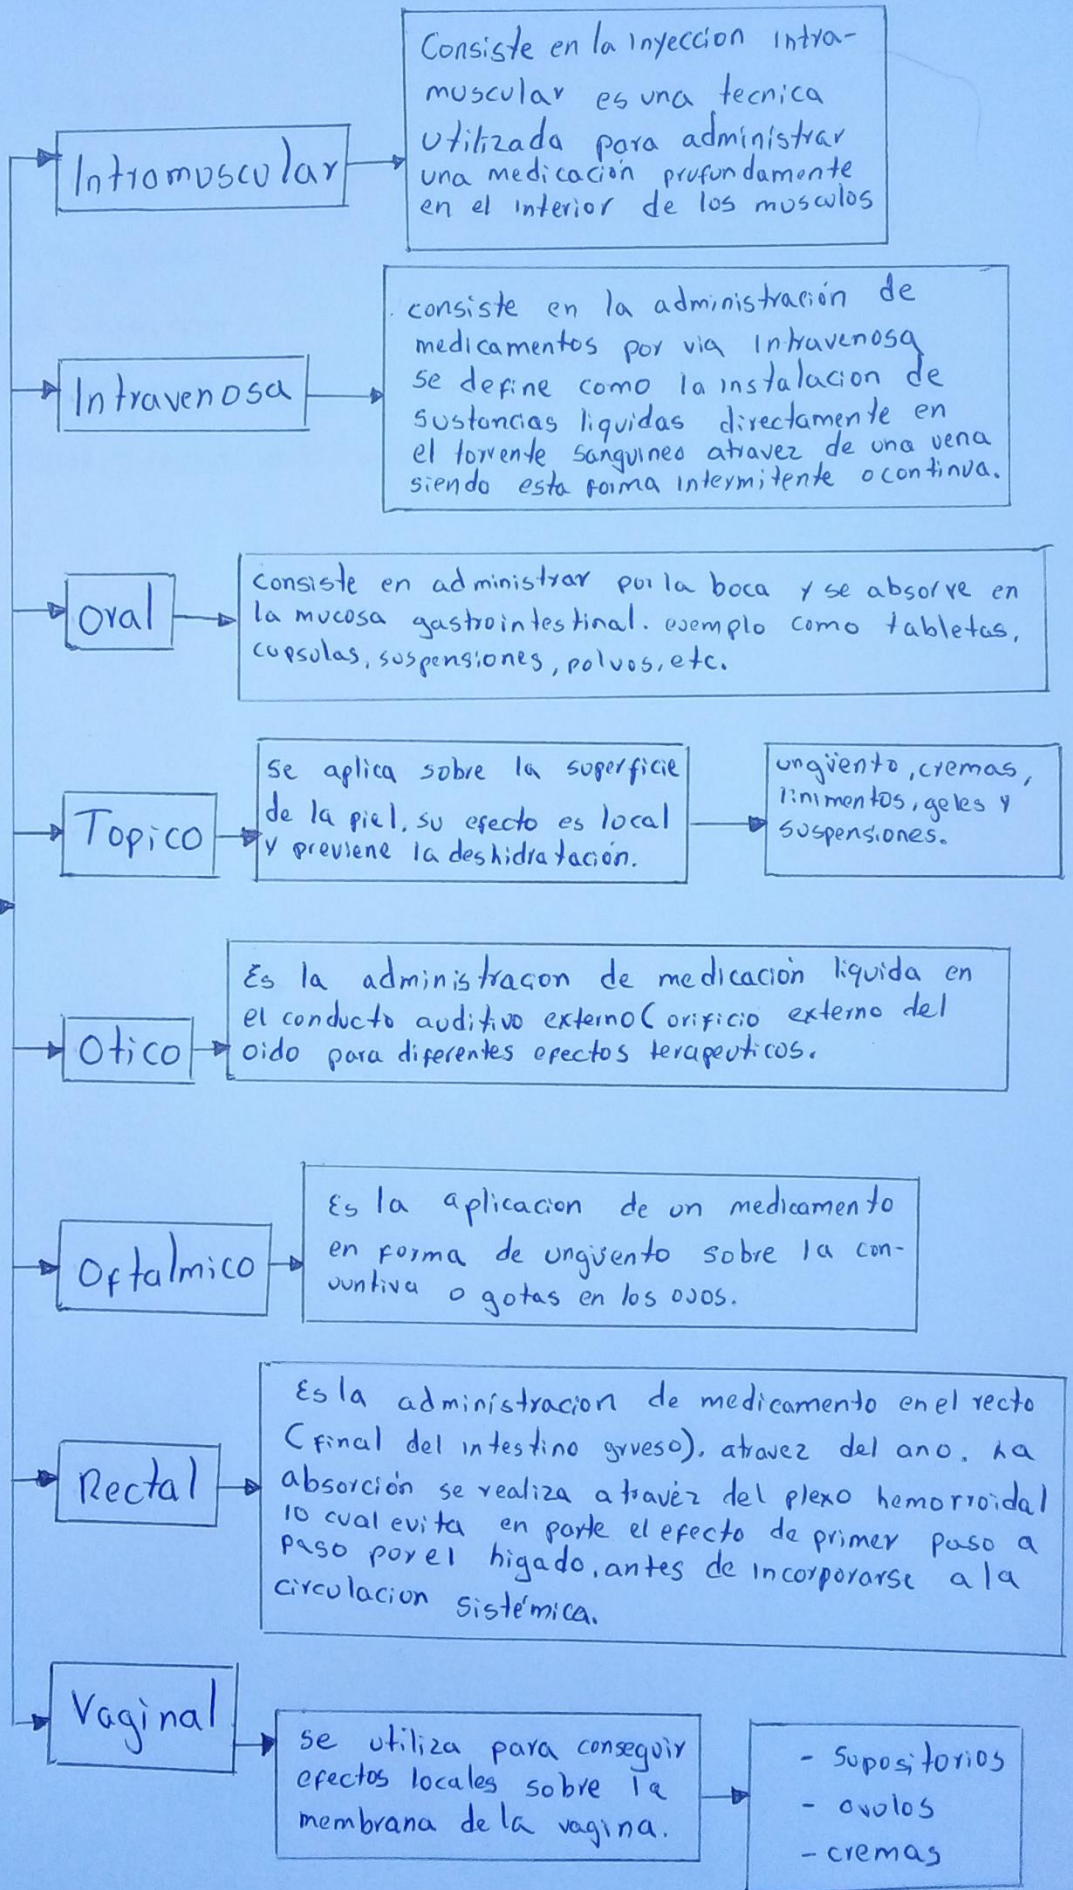 Intramuscular
Consiste en la inyeccion intra-
muscular es una tecnica
utilizada para administrar
una medicación profundamente
en el interior de los musculos
Intravenosa
consiste en la administración de
medicamentos por via intravenosa
se define como la instalacion de
sustancias liquidas directamente en
el torrente sanguineo atravez de una vena
siendo esta forma intermitente o continua.
Oral
consiste en administrar por la boca y se absorve en
la mucosa gastrointestinal. ejemplo como tabletas,
capsulas, suspensiones, polvos, etc.
Topico
se aplica sobre la superficie
de la piel. su efecto es local
y previene la deshidratación.
ungüento, cremas,
linimentos, geles y
suspensiones.
Otico
Es la administracon de medicación liquida en
el conducto auditivo externo (orificio externo del
oido para diferentes efectos terapeuticos.
Oftalmico
Es la aplicacion de un medicamento
en forma de ungüento sobre la con-
juntiva o gotas en los ojos.
Rectal
Es la administracion de medicamento en el recto
(final del intestino grueso). atravez del ano. La
absorción se realiza a travéz del plexo hemorroidal
lo cual evita en parte el efecto de primer paso a
paso por el higado, antes de incorporarse a la
circulacion sistémica.
Vaginal
se utiliza para conseguir
efectos locales sobre la
membrana de la vagina.
- supositorios
- ovulos
- cremas